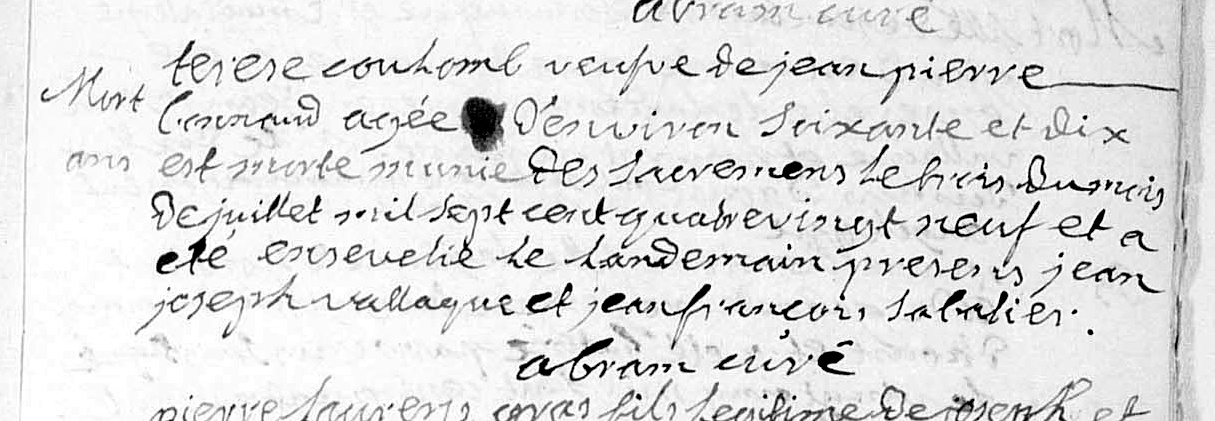 abram curé
terese couhomb veufve de jean pierre
Mort bernard agée d'environ soixante et dix
ans est morte munie des sacremens le trois du mois
de juillet mil sept cent quatrevingt neuf et a
eté ensevelie le landemain presens jean
joseph vallaque et jean françois sabatier.
abram curé
pierre laurens gras fils legitime de joseph et